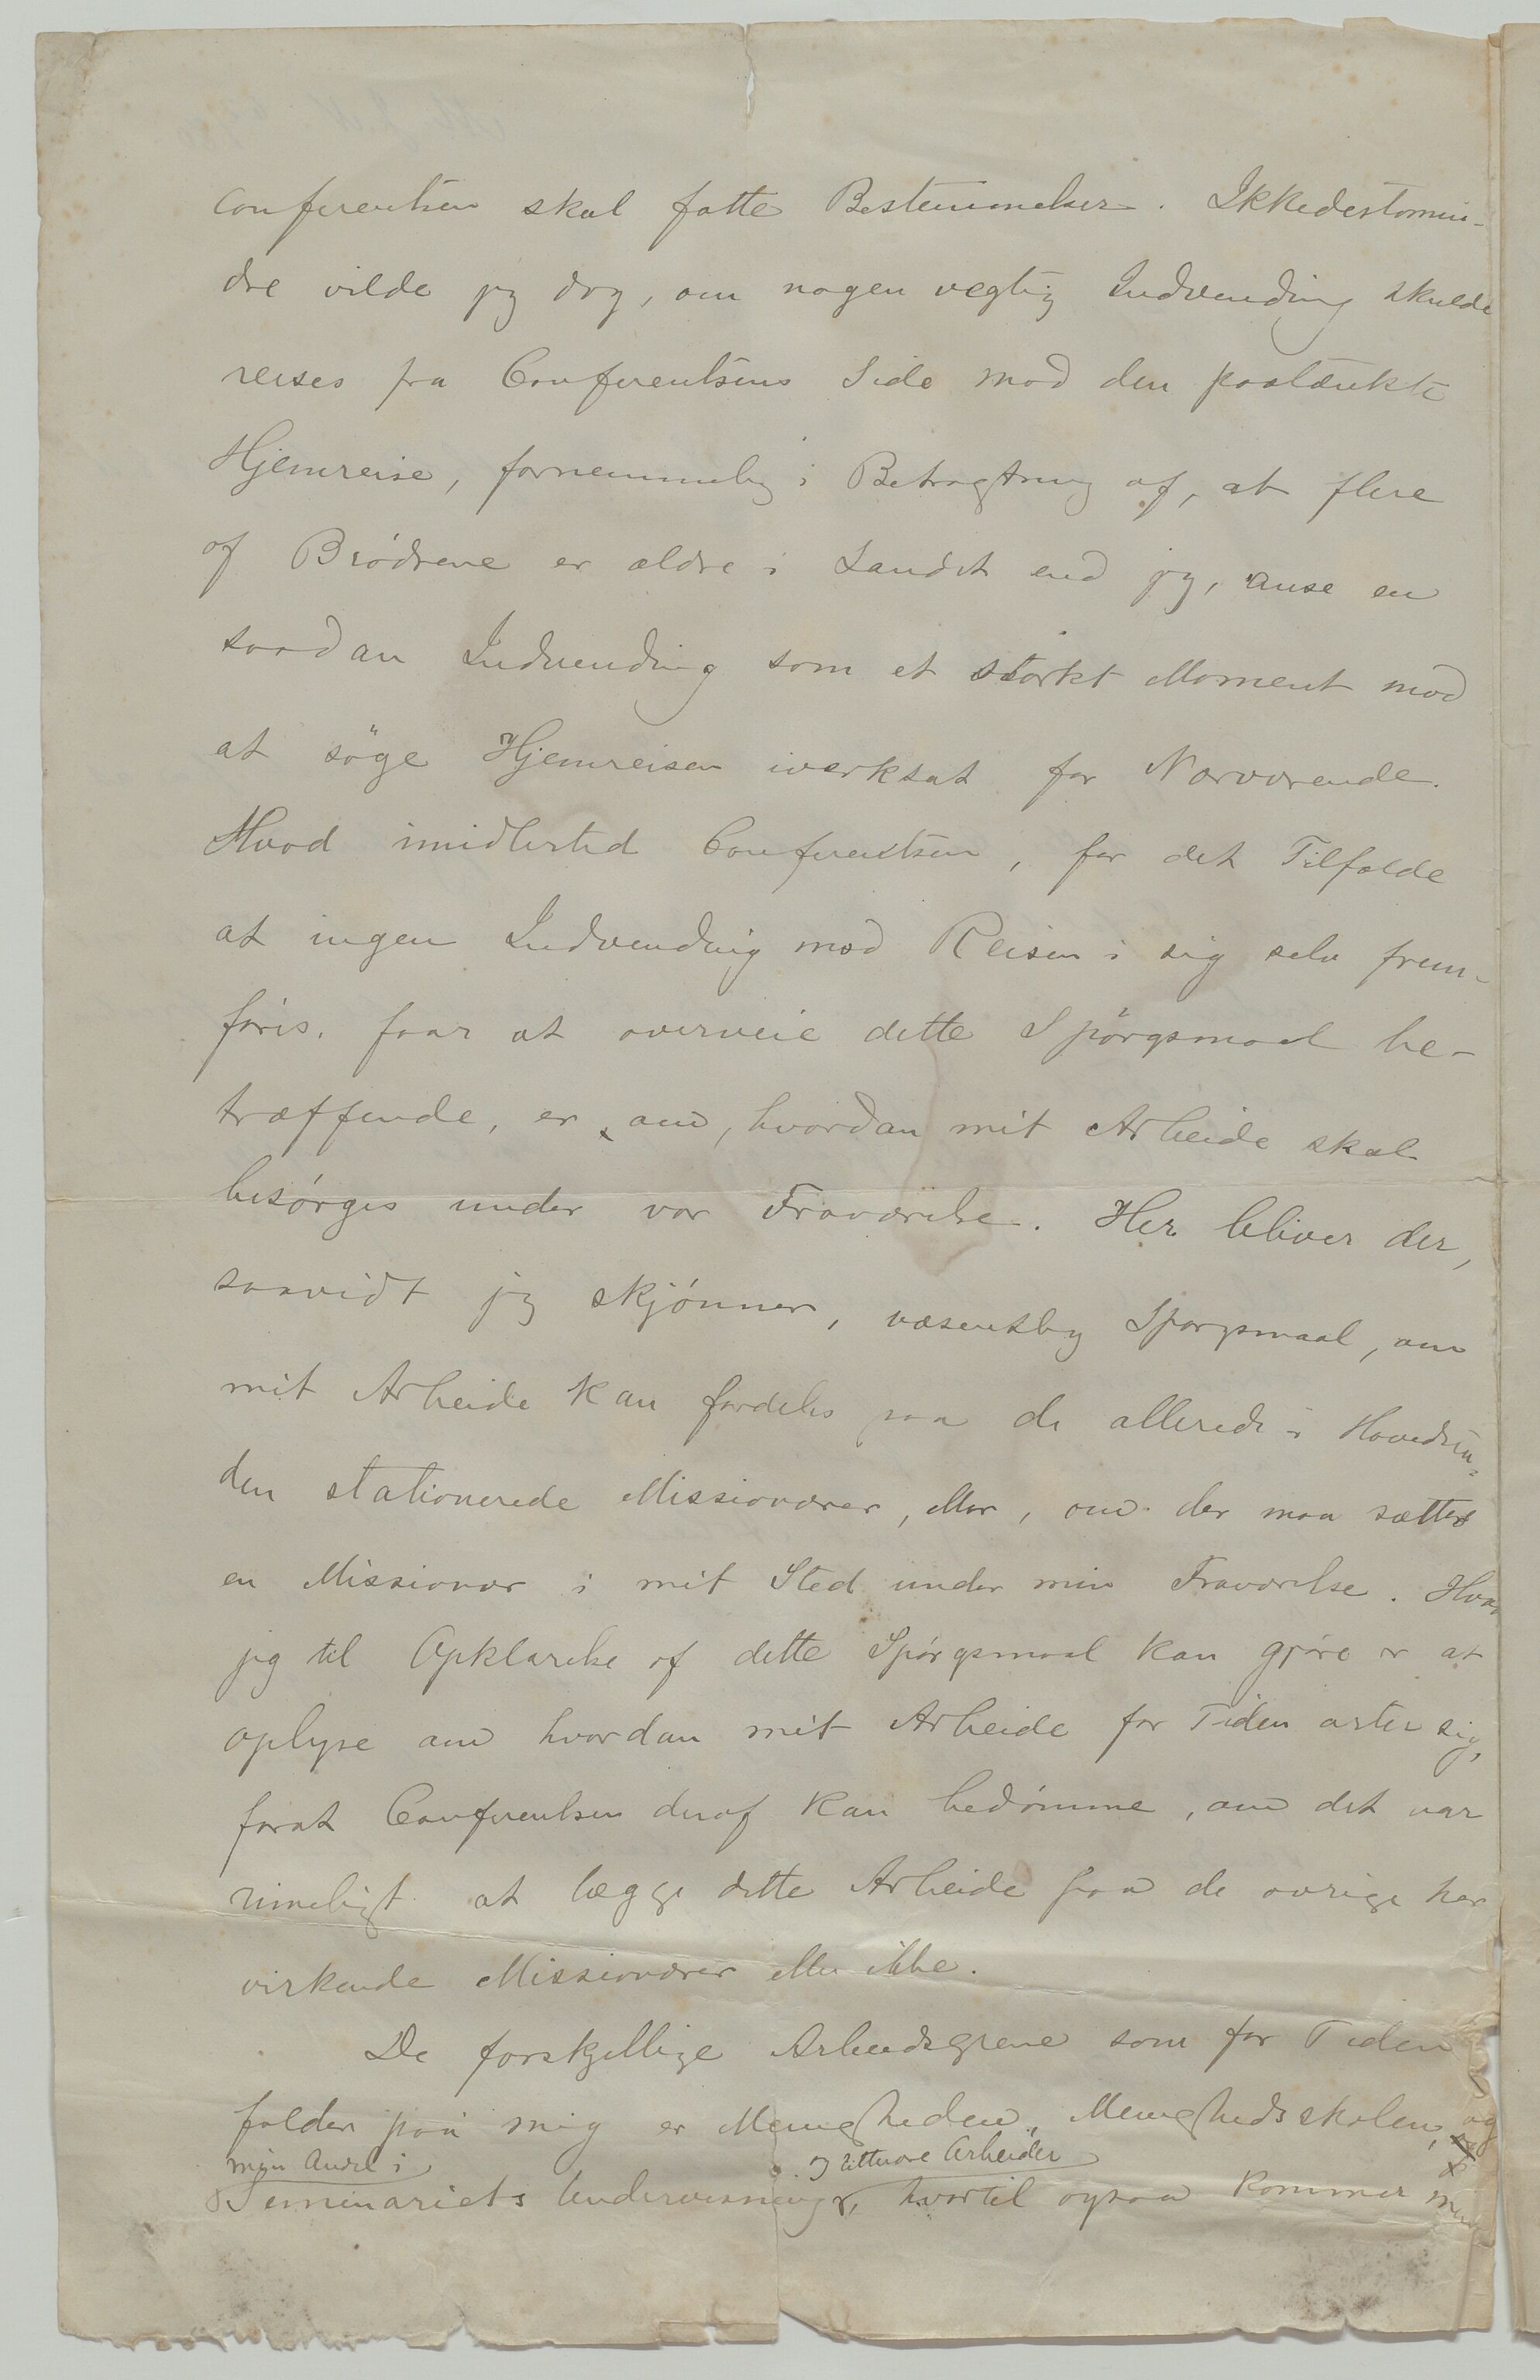 Conferentsen skal fatte Bestemmelser. Ikkedestomin-
dre vilde jeg dog, om nogen vegtig Indvending skulde
reises fra Conferentsens Side mod den paatænkte
Hjemreise, fornemmelig i Betragtning af, at flere
af Brødrene er ældre i Landet end jeg, anse en
saadan Indvending som et stærkt Moment mod
at søge Hjemreisen iverksat for Nærværende.
Hvad imidlertid Conferentsen, for det Tilfælde
at ingen Indvending mod Reisen i sig selv frem-
føres, faar at overveie dette Spørgsmaal be-
træffende, er om, hvordan mit Arbeide skal
besørges under vor Fraværelse. Her bliver der,
saavidt jeg skjønner, væsentlig Spørgsmaal, om
mit Arbeide kan fordeles paa de allerede i Hovedsta-
den stationerede Missionærer, eller, om der maa sættes
en Missionær i mit Sted under min Fraværelse. Hvad
jeg til Opklarelse af dette Spørgsmaal kan gjøre er at
oplyse om hvordan mit Arbeide for Tiden arter sig,
forat Conferentsen deraf kan bedømme, om det var
rimeligt at lægge dette Arbeide paa de øvrige her
virkende Missionærer eller ikke.
De forskjellige Arbeidsgrene som for Tiden
falder paa mig er Menigheden, Menighedsskolen, og
min Andel i
og litterære Arbeider
Seminariets Undervisning, hvortil ogsaa kommer